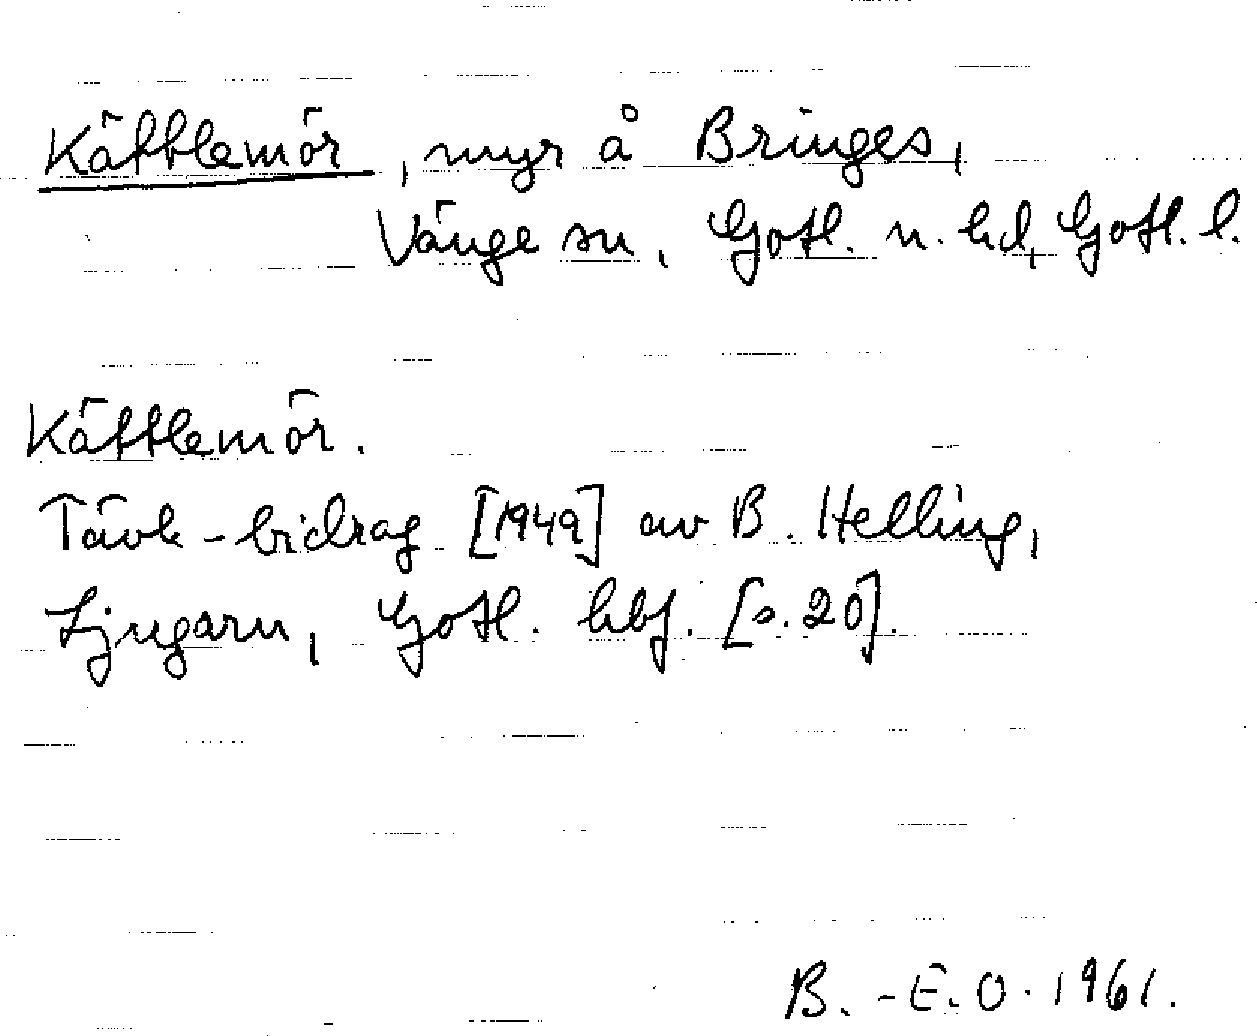 Kättlemör, myr å Bringes,
Vänge sn, Gotl. n. hd, Gotl. l.
Kättlemör.
Tävl-bidrag [1949] av B. Helling,
Ljugarn, Gotl. hbf. [s. 20].
B.-E. O. 1961.